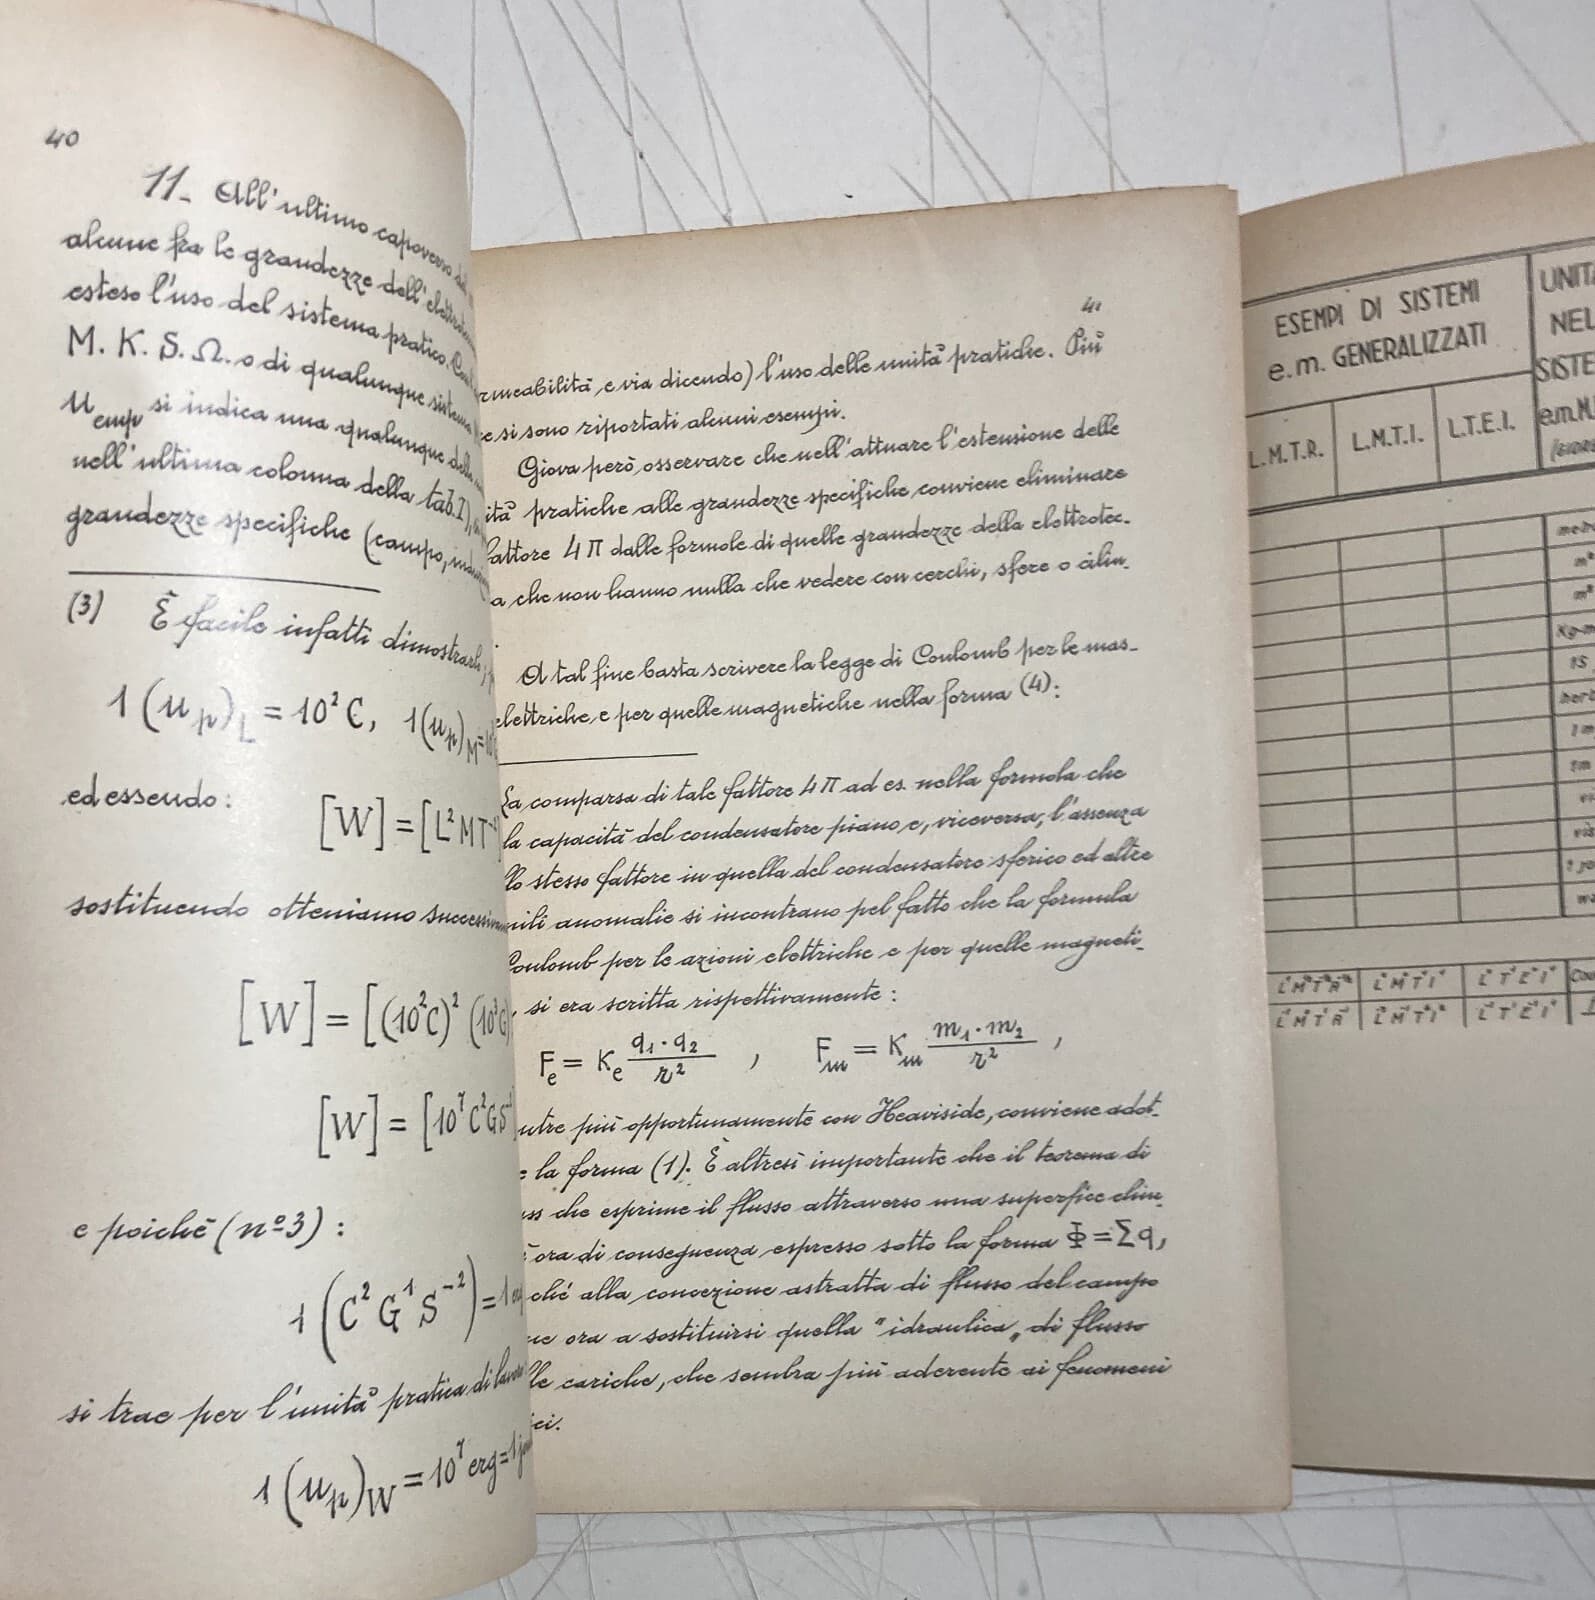 40
11- All'ultimo capoverso
alcune fra le grandezze dell'
esteso l'uso del sistema pratico.
M. K. S. Ω. o di qualunque sistema
u emp si indica una qualunque
nell'ultima colonna della tab. I),
grandezze specifiche (campo,
(3) È facile infatti dimostrarlo;
1 (u_p)_L = 10² C, 1 (u_p)_M = 10
ed essendo:
[W] = [L² M T
sostituendo otteniamo
[W] = [(10² C)² (10
[W] = [10⁷ C² G S
e poichè (nº 3):
1 (C² G¹ S⁻²) = 1
si trae per l'unità pratica di
1 (u_p)_W = 10⁷ erg = 1
41
rmeabilità, e via dicendo) l'uso delle unità pratiche. Più
si sono riportati alcuni esempi.
Giova però osservare che nell'attuare l'estensione delle
ità pratiche alle grandezze specifiche conviene eliminare
fattore 4π dalle formole di quelle grandezze della elettrotec-
a che non hanno nulla che vedere con cerchi, sfere o cilin-
A tal fine basta scrivere la legge di Coulomb per le mas-
elettriche e per quelle magnetiche nella forma (4):
La comparsa di tale fattore 4π ad es. nella formola che
la capacità del condensatore piano e, viceversa, l'assenza
llo stesso fattore in quella del condensatore sferico ed altre
mili anomalie si incontrano pel fatto che la formula
Coulomb per le azioni elettriche e per quelle magneti-
si era scritta rispettivamente:
F_e = K_e q₁·q₂/r² , F_m = K_m m₁·m₂/r² ,
ntre più opportunamente con Heaviside, conviene adot-
e la forma (1). È altresì importante che il teorema di
uss che esprime il flusso attraverso una superfice chiu-
è ora di conseguenza espresso sotto la forma Φ = Σq,
chè alla concezione astratta di flusso del campo
ne ora a sostituirsi quella "idraulica" di flusso
lle cariche, che sembra più aderente ai fenomeni
ici.
ESEMPI DI SISTEMI
e.m. GENERALIZZATI
L.M.T.R. L.M.T.I. L.T.E.I.
UNITA
NEL
SISTE
e.m.M.